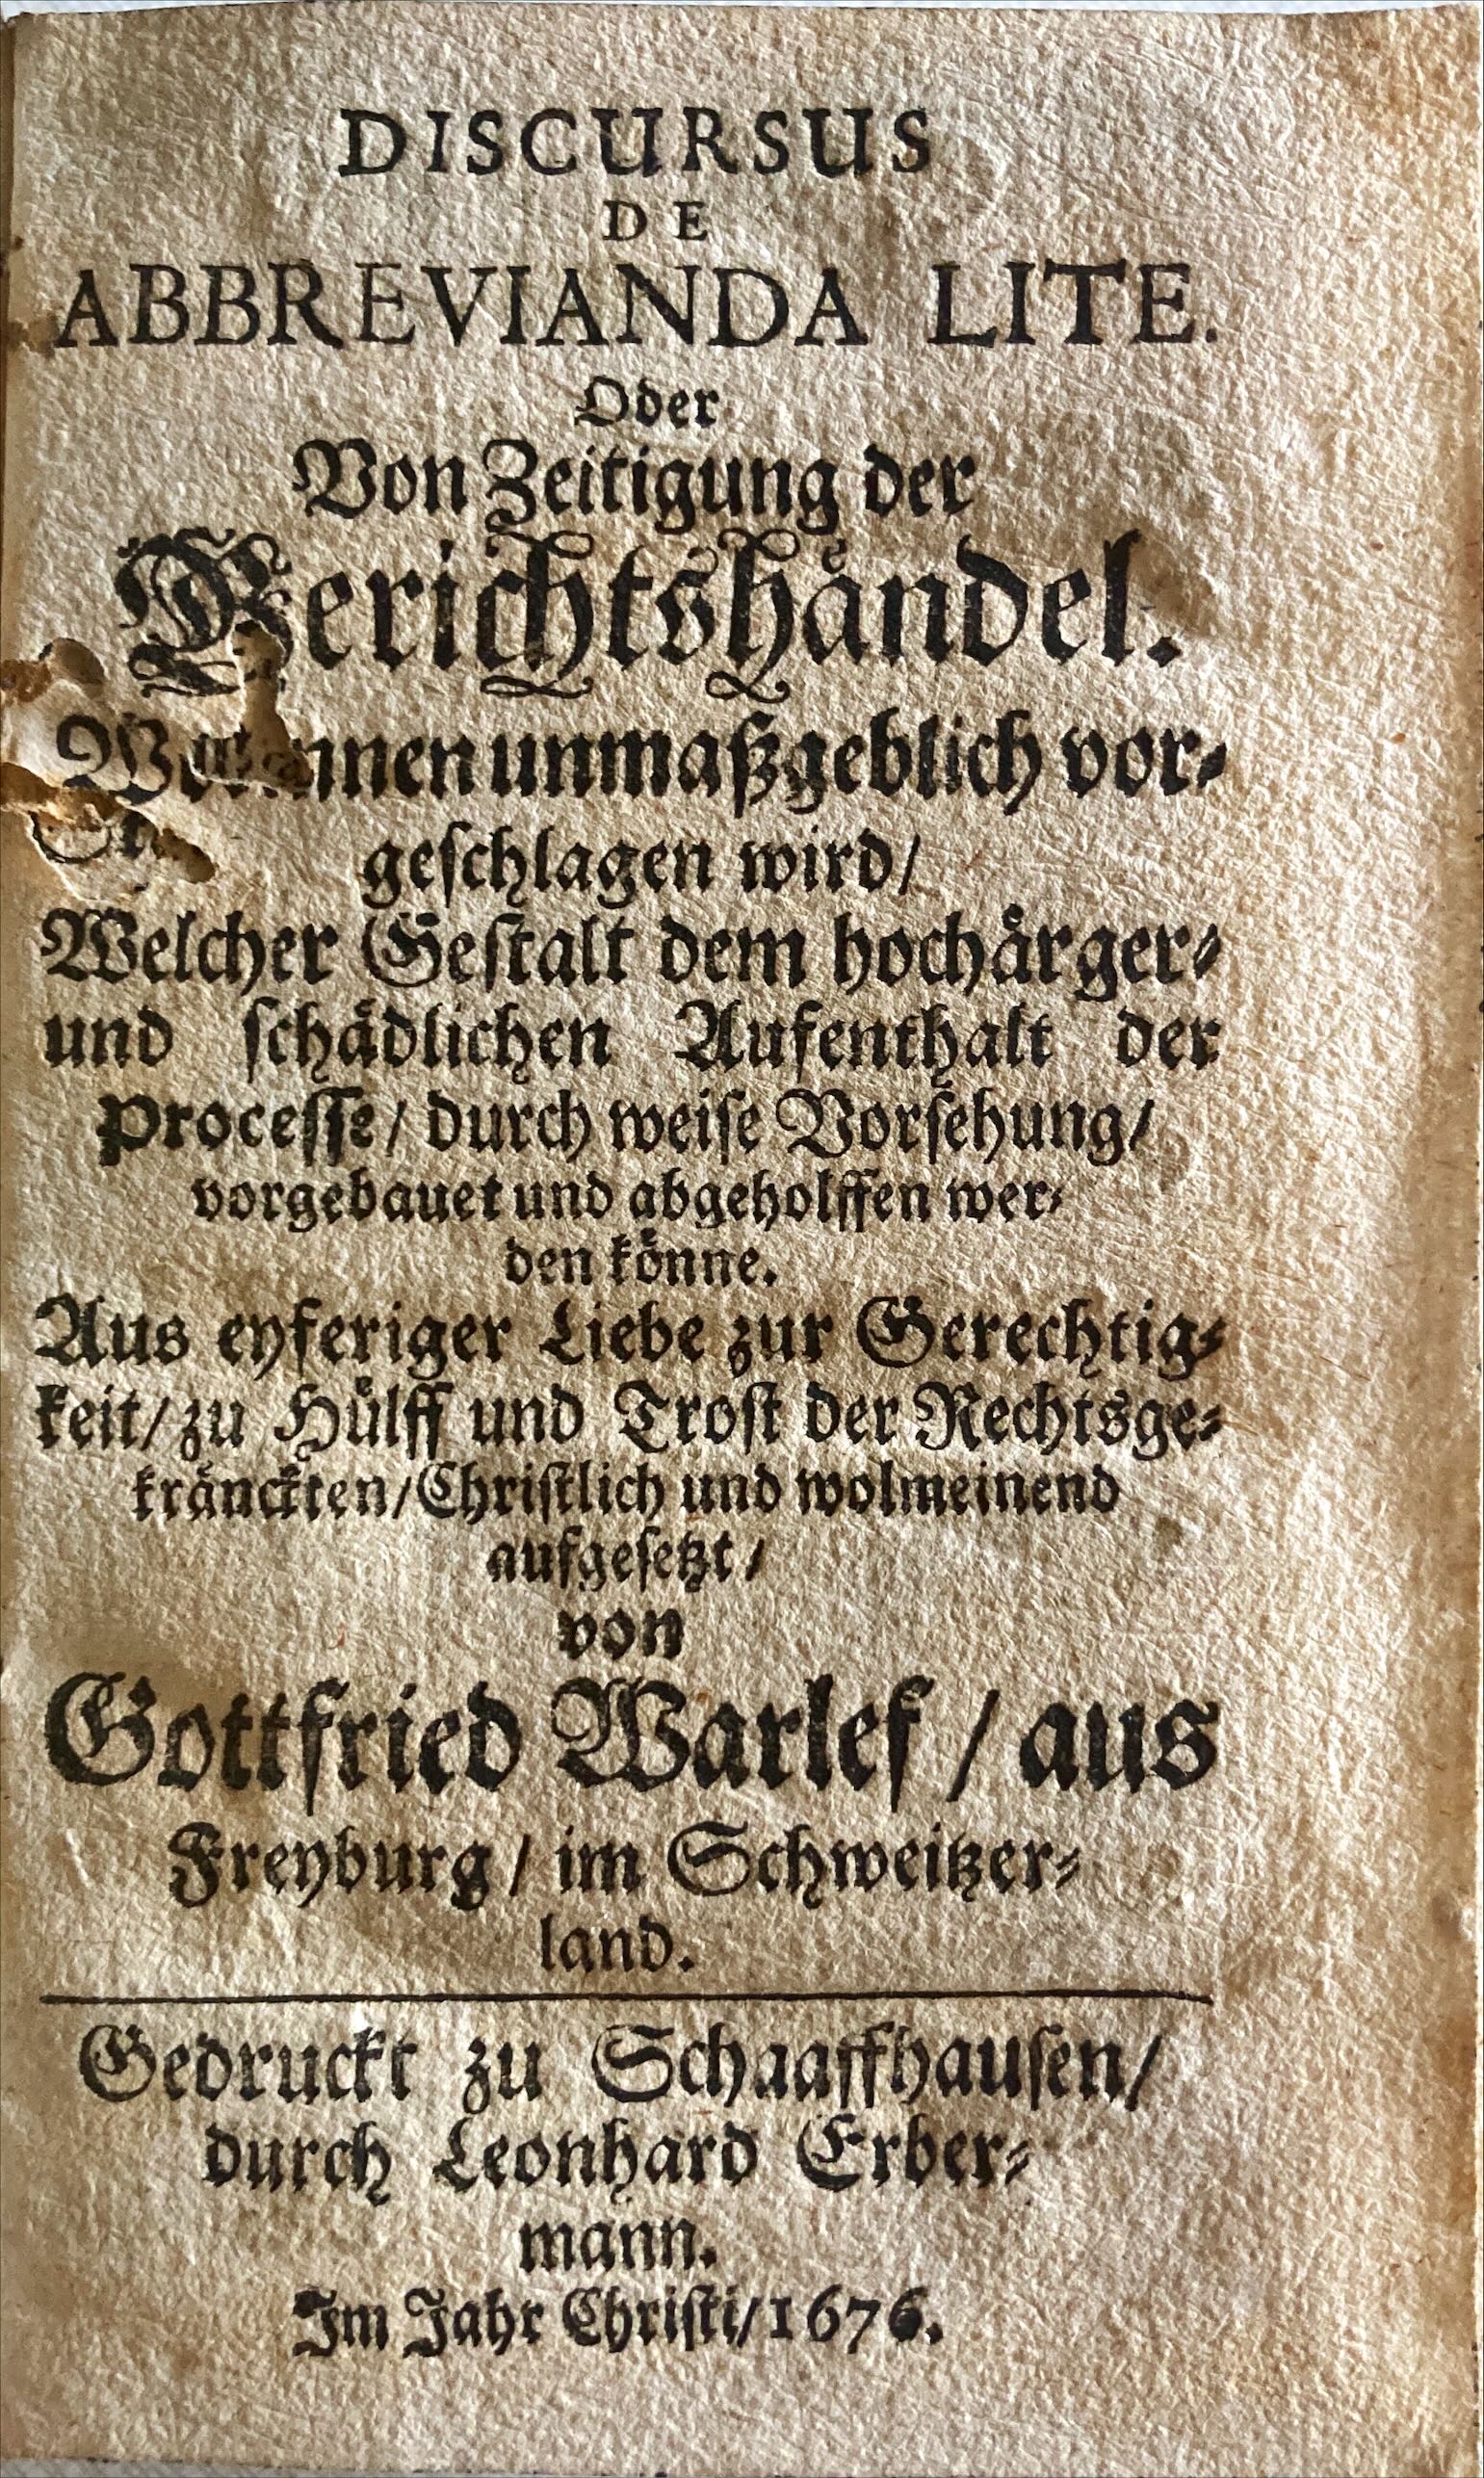 DISCURSUS
DE
ABBREVIANDA LITE.
Oder
Von Zeitigung der
Gerichtshåndel.
unmaßgeblich vor⸗
geſchlagen wird/
Welcher Geſtalt dem hochårger⸗
und ſchådlichen Aufenthalt der
Proceſſe/ durch weiſe Vorſehung/
vorgebauet und abgeholffen wer⸗
den könne.
Aus eyferiger Liebe zur Gerechtig⸗
keit/ zu Hülff und Troſt der Rechtsge⸗
krånckten/ Chriſtlich und wolmeinend
aufgeſetzt/
von
Gottfried Warlef / aus
Freyburg/ im Schweitzer⸗
land.
Gedruckt zu Schaaffhauſen/
durch Leonhard Erber⸗
mann.
Im Jahr Chriſti/ 1676.